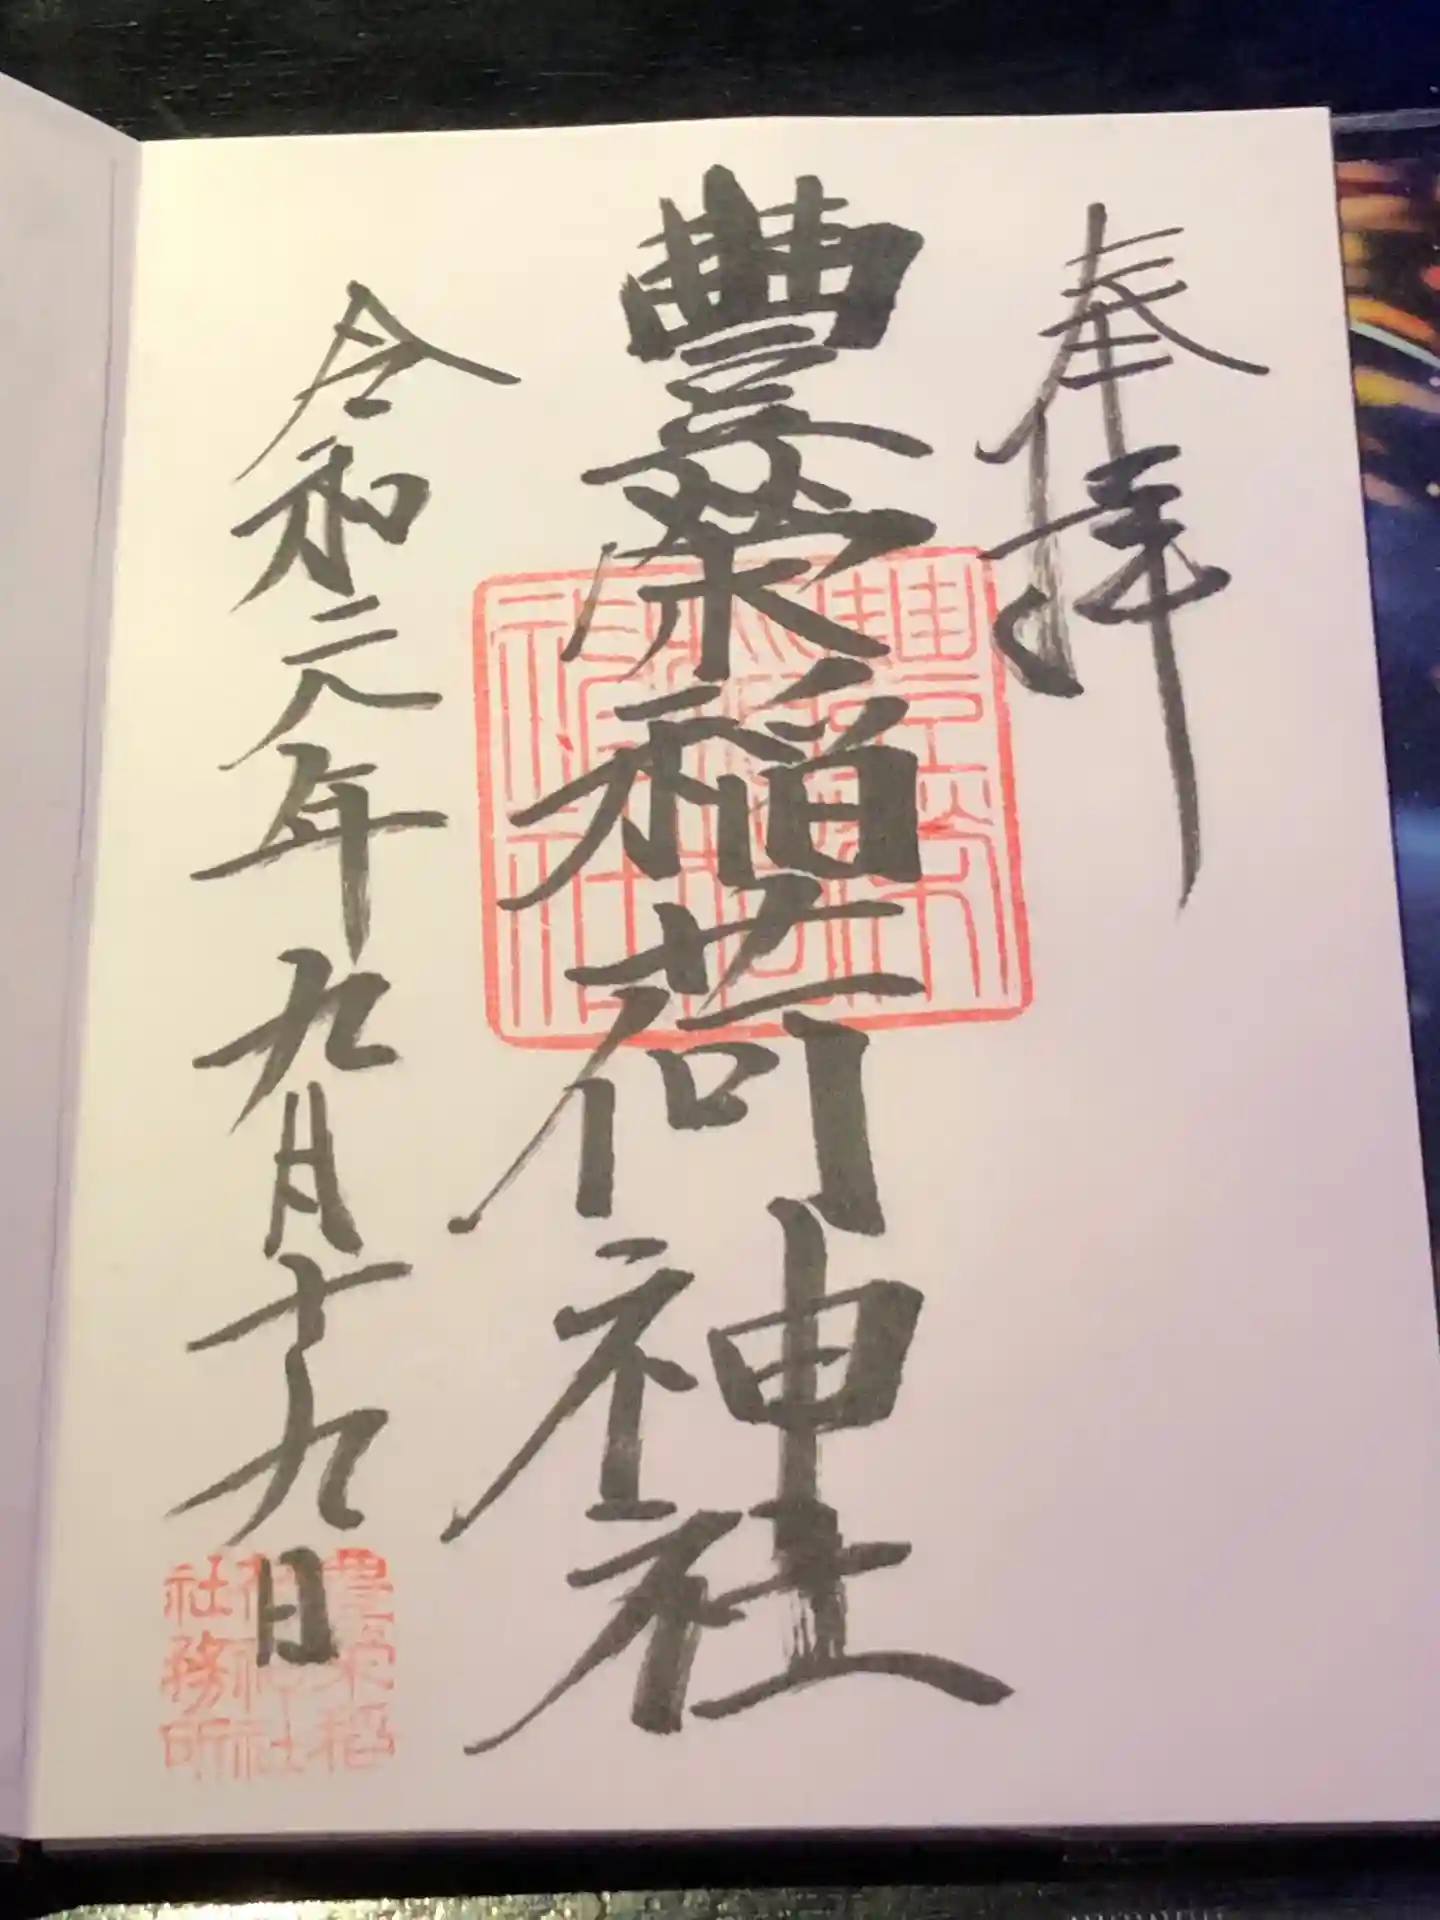 奉拝
豊栄稲荷神社
令和元年九月十九日
豊栄稲
荷神社
社務所